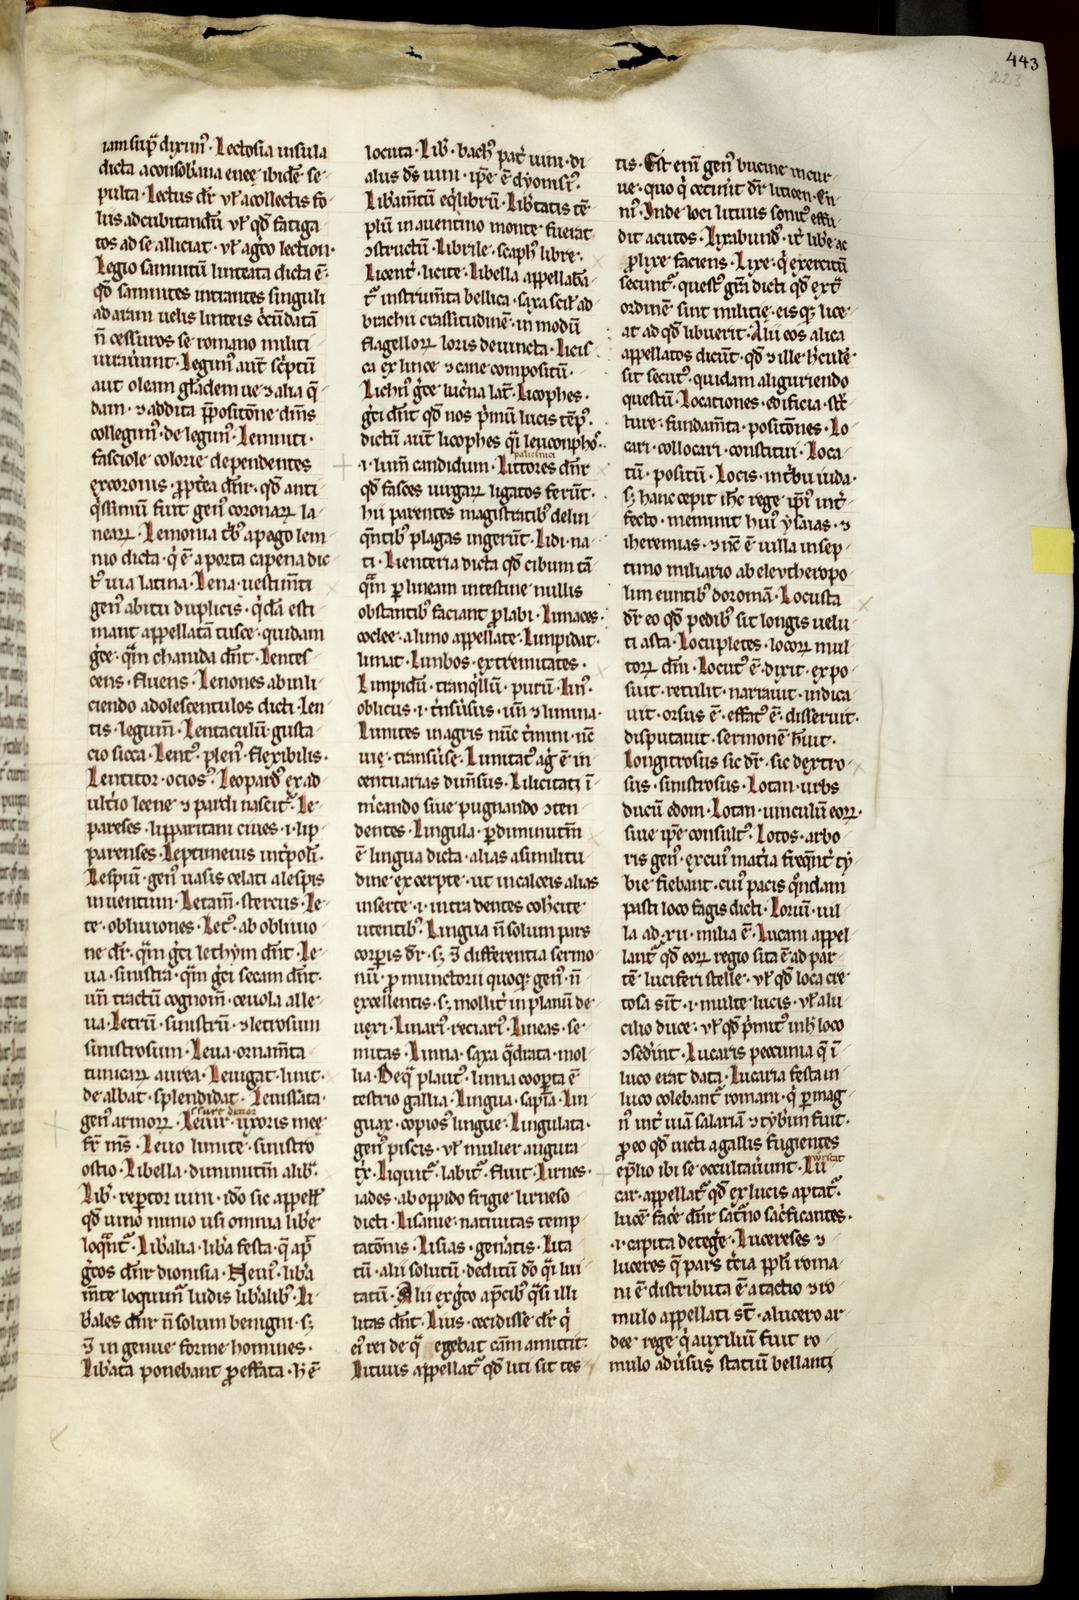 443
223
iam sup̄ dixim᷒ · Lectosia insula
dicta a consobrina enee ibidē se-
pulta · Lectus dr̄ vl̓ a collectis fo-
liis ad cubitandū vl̓ qd̓ fatiga
tos ad se alliciat · vl̓ a greco lection ·
Legio samnitū linteata dicta ē ·
qd̓ samnites intrantes singuli
ad aram uelis linteis c̓cūdatā
n̄ cessuros se romano militi
iurauīunt · Legim᷒ aut̄ sc̓ptū
aut oleam glādem ue ⁊ alia q̄
dam · ⁊ addita p̄positōne dīms
collegim᷒ · de legim᷒ · Lemniti ·
fasciole colorie dependentes
ex coronis · p̱pt̓ea dn̄r · qd̓ anti
q̓ssimū fuit gen᷒ coronaꝝ la-
neaꝝ · Lemonia t̓b᷒ a pago lem
nio dicta · q̓ ē a porta capena dic
t̓ uia latina · Lena · uestimn̄ti
gen᷒ abitu duplicis · q̓dā esti
mant appellatā tusce · quidam
gc̄e · q̄m chanida dn̄t · Lentes
cens · fluens · Lenones ab inli
ciendo adolescentulos dicti · Len
tis · legum̄ · Lentaculū · gusta
cio sicca · Lent᷒ · plen᷒ · flexibilis ·
Lentitor · ocios᷒ · Leopard᷒ ex ad
ult̓io leene ⁊ pardi nascit᷒ · Le-
pareses · lipparitani ciues · i · lip-
parenses · Leptimeius int̓pol̄ ·
Lespiū · gen᷒ uasis celati a lespis
inuentum · Letam̄ · stercus · Le-
te · obliuiones · Let᷒ · ab obliuio
ne dr̄ · q̄m gc̓i lethym dn̄t · Le-
ua · sinistra · q̄m gc̓i secam dn̄t ·
un̄ tractū cognom̄ · ceuola alle-
ua · Letrū · sinistrū · ⁊ letrosum
sinistrosum · Leua · ornam̄ta
tunicaꝝ aurea · Leuigat · linit ·
de albat · splendidat · Leuisata
gen᷒ armoꝝ · Leuir · uxoris mee
fr̄ ms̄ · Leuo limite · sinistro
ostio · Libella · diminutiū alib̓ ·
Lib̓ · rep̱tor uini · ido sic appell̄
qd̓ uino nimio usi omnia libe
loq̄nt᷒ · Lib̓alia · lib̓a festa · q̄ ap̄
gc̓os dn̄r dionisia · Neui᷒ · lib̓a
m̄te loquim᷒ ludis lib̓alib᷒ · Li
b̓ales dn̄r n̄ solum benigni · s;
⁊ in genue forme homines ·
Lib̓ata ponebant p̱ effata · h ē
locuta · Lib̓ · bach᷒ pat̓ uini · di
alus ds̄ uini · ip̄e ē dyonisi᷒ ·
Lib̓amītū eq̓librū · Lib̓tatis tē-
plū in auentino monte fuerat
ↄstructū · Librile · scaph᷒ libre ·
Licent᷒ · licite · Libella appellabā-
t᷒ instrum̄ta bellica · saxa scil̓ ad
brachii crassitudinē · in modū
flagelloꝝ loris deuincta · Licis
ca ex lince ⁊ cane compositū ·
Lichn᷒ gc̄e luc̓na lat̄ · Licophes ·
gc̓i dn̄t qd̓ nos p̓mū lucis tēp᷒ ·
dictū aut̄ licophes q̓i leuconpho᷒ ·
·i· lum̄ candidum · Littores dn̄r
qd̓ fasces uirgaꝝ ligatos ferūt ·
hii parentes magistratib᷒ delin
q̄ntib᷒ plagas ingerūt · Lidi · na-
ti · Lienteria dicta qd̓ cibum tā
q̄m ꝑ lineam intestine nullis
obstantib᷒ faciant p̱labi · Limaces ·
coclee · a limo appellate · Limpidat ·
limat · Limbos · extremitates ·
Limpidū · tranq̓llū · purū · Lim᷒ ·
oblicus · i · t̓nsūsus · un̄ ⁊ limina ·
Limites in agris nūc t̓mini · nc̄
uie · transūse · Limitat᷒ ag̓ ē in
centuarias dim̄sus · Lilicitatꝫ ī
micando siue pugnando ↄten
dentes · Lingula · ꝑ diminutiū
ē lingua dicta · alias a similitu
dine excerpte · ut in calceis alias
inserte · i · intra dentes coh̓cite
utentib᷒ · Lingua n̄ solum pars
corp̱is dr̄ · s; ⁊ differentia sermo
nū · p̱ munctorii quoq; gen᷒ n̄
excellentis · s; mollit̓ in planū de
uexi · Linari᷒ · reciari᷒ · Lineas · se-
mitas · Linna · saxa q̄drata · mol-
lia · Deq̄ plaut᷒ · linna coop̱ta ē
testrio gallia · Lingua · sapīa · Lin
guax · copios᷒ lingue · Lingulata ·
gen᷒ piscis · vl̓ mulier augura
tx̄ · Liquit᷒ · labit᷒ · fluit · Lirnes ·
iades · ab oppido frigie lirneso
dicti · Lisanie · natiuitas temp
tatōnis · Lisias · gen̄atis · Lita
tū · alii solutū · deditū do q̓i lui
tatū · Alii ex gc̓o ap̱cib᷒ q̓si illi
litas dn̄t · Lius · cecidisse dr̄ q̓
ei᷒ rei de q̄ egebat cām amittit ·
Lituus appellat᷒ qd̓ liti sit tes
tis · Est enī gen᷒ bucine incur
ue · quo q̓ cecin̄it dr̄ liticen · En
ni᷒ · Inde loci lituus sonit᷒ effu
dit acutos · Lixabund᷒ · it̓ lib̓e ac
p̱lixe faciens · Lixe · q̓ exercitū
secunt᷒ · quest᷒ gr̄a dicti qd̓ ext̄
ordinē sint militie · eisq; lice
at ad qd̓ libuerit · Alii eos a lica
appellatos dicūt · qd̓ ⁊ ille h̓culē
sit secut᷒ · quidam a liguriendo
questū · Locationes · edificia · st̄c
ture · fundam̄ta · positiones · Lo
cari · collocari · constitui · Loca
tū · positū · Locis · in tribu iuda ·
s; hanc cepit ihc̄ rege ip̄i᷒ int̓
fecto · meminit hui᷒ ysaias · ⁊
iheremias · ⁊ nc̄ ē uilla in sep
timo miliario ab eleutheropo
lim euntib᷒ doromā · Locusta
dr̄ eo qd̓ pedib᷒ sit longis uelu
ti asta · Locupletes · locoꝝ mul
toꝝ dn̄i · Locut᷒ ē · dixit · expo
suit · retulit · narrauit · indica
uit · orsus ē · effat᷒ ē · disseruit ·
disputauit · sermonē h̓uit ·
Longitrosus sic dr̄ · sic dextro
sus · sinistrosus · Lotan · urbs
ducū edom · Lotan · uinculū eoꝝ ·
siue ip̄e consult᷒ · Lotos · arbo
ris gen᷒ · ex cui᷒ mat̓ia freq̄nt̓ ty
bie fiebant · cui᷒ pacis q̓ndam
pasti loco fagis dicti · Loriū · uil
la ad · xii · milia ē · Lucani appel
lant᷒ qd̓ eoꝝ regio sita ē ad par
tē luciferi stelle · vl̓ qd̓ loca cre
tosa sūt · i · multe lucis · vl̓ a lu
cilio duce · vl̓ qd̓ p̓mit᷒ in h̓ loco
ↄsed̓int · Lucaris peccunia q̄ ī
luco erat data · Lucaria festa in
luco colebant᷒ romani · q̓ ꝑ mag
n̄ int̓ uiā salariā ⁊ tybim fuit ·
p̱ eo qd̓ uicti a gallis fugientes
ep̄lio ibi se occultauīunt · Lu
car · appellat᷒ qd̓ ex lucis aptat᷒ ·
lucē face dn̄r sat̓no sac̓ficantes ·
·i· capita deteg̓e · Lucereses ⁊
luceres q̄ pars t̓cia p̱pl̓i roma
ni ē distributa ē a tacio ⁊ ro
mulo appellati st̄ · a lucero ar
dee rege q̓ auxiliū fuit ro
mulo aduīsus statiū bellanti